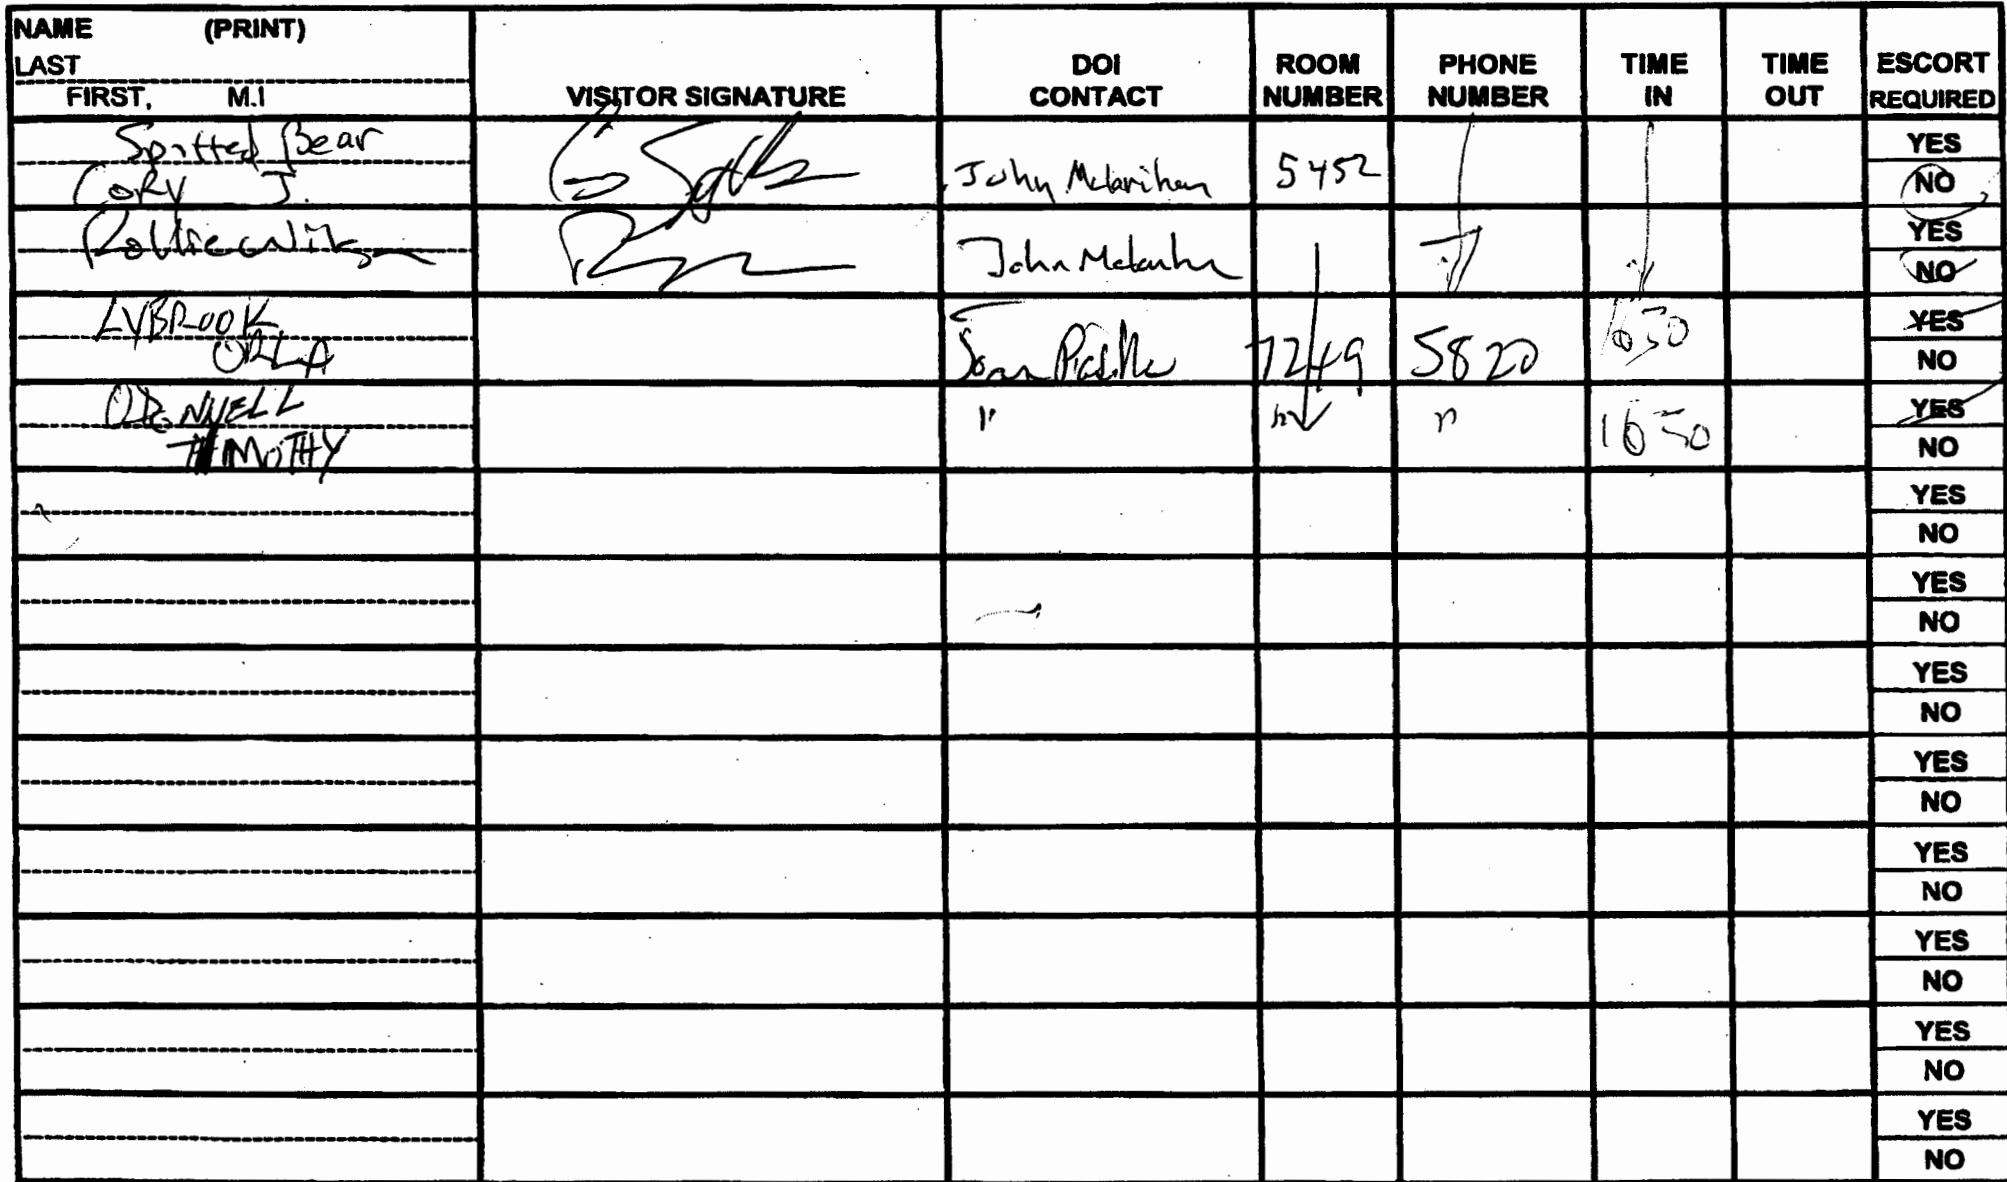 NAME (PRINT)
LAST
FIRST, M.I
VISITOR SIGNATURE
DOI CONTACT
ROOM NUMBER
PHONE NUMBER
TIME IN
TIME OUT
ESCORT REQUIRED
Spotted Bear
Cory J.
John
5452
YES
NO
John
YES
NO
LYBROOK
ORLA
7249
5820
1650
YES
NO
TIMOTHY
"
"
"
1650
YES
NO
YES
NO
YES
NO
YES
NO
YES
NO
YES
NO
YES
NO
YES
NO
YES
NO